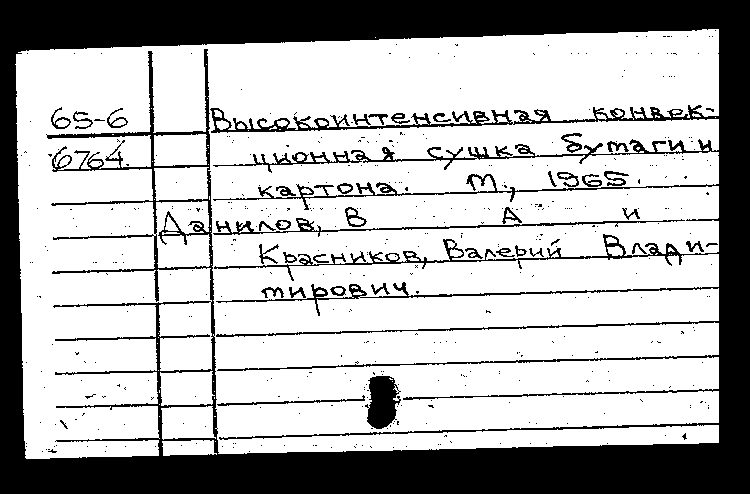 65-6 Высокоинтенсивная конвек-
6764. ционная сушка бумаги и
картона. М., 1965.
Данилов, В А и
Красников, Валерий Влади-
мирович.